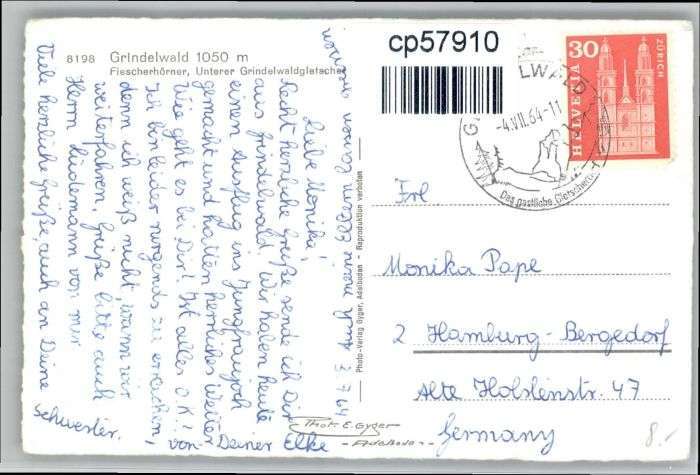 8198 Grindelwald 1050 m
Fiescherhörner, Unterer Grindelwaldgletscher
cp57910
HELVETIA
30
ZÜRICH
-4.VII.64-11
Das gastliche Gletscherdorf
3.7.64
Liebe Monika!
Recht herzliche Grüße sende ich Dir
aus Grindelwald. Wir haben heute
einen Ausflug ins Jungfraujoch
gemacht und hatten herrliches Wetter.
Wie geht es bei Dir? Ist alles O.K.!
Ich bin leider nirgends zu erreichen,
denn ich weiß nicht, wann wir
weiterfahren. Grüße bitte auch
Herrn Lindemann von mir
Viele herzliche Grüße, auch an Deine
Schwester.
von Deiner Elke
Auch meine Eltern lassen
Photo-Verlag Gyger, Adelboden - Reproduktion verboten
Phot. E. Gyger
- Adelboden -
Frl
Monika Pape
2 Hamburg-Bergedorf
Alte Holstenstr. 47
Germany
8.-